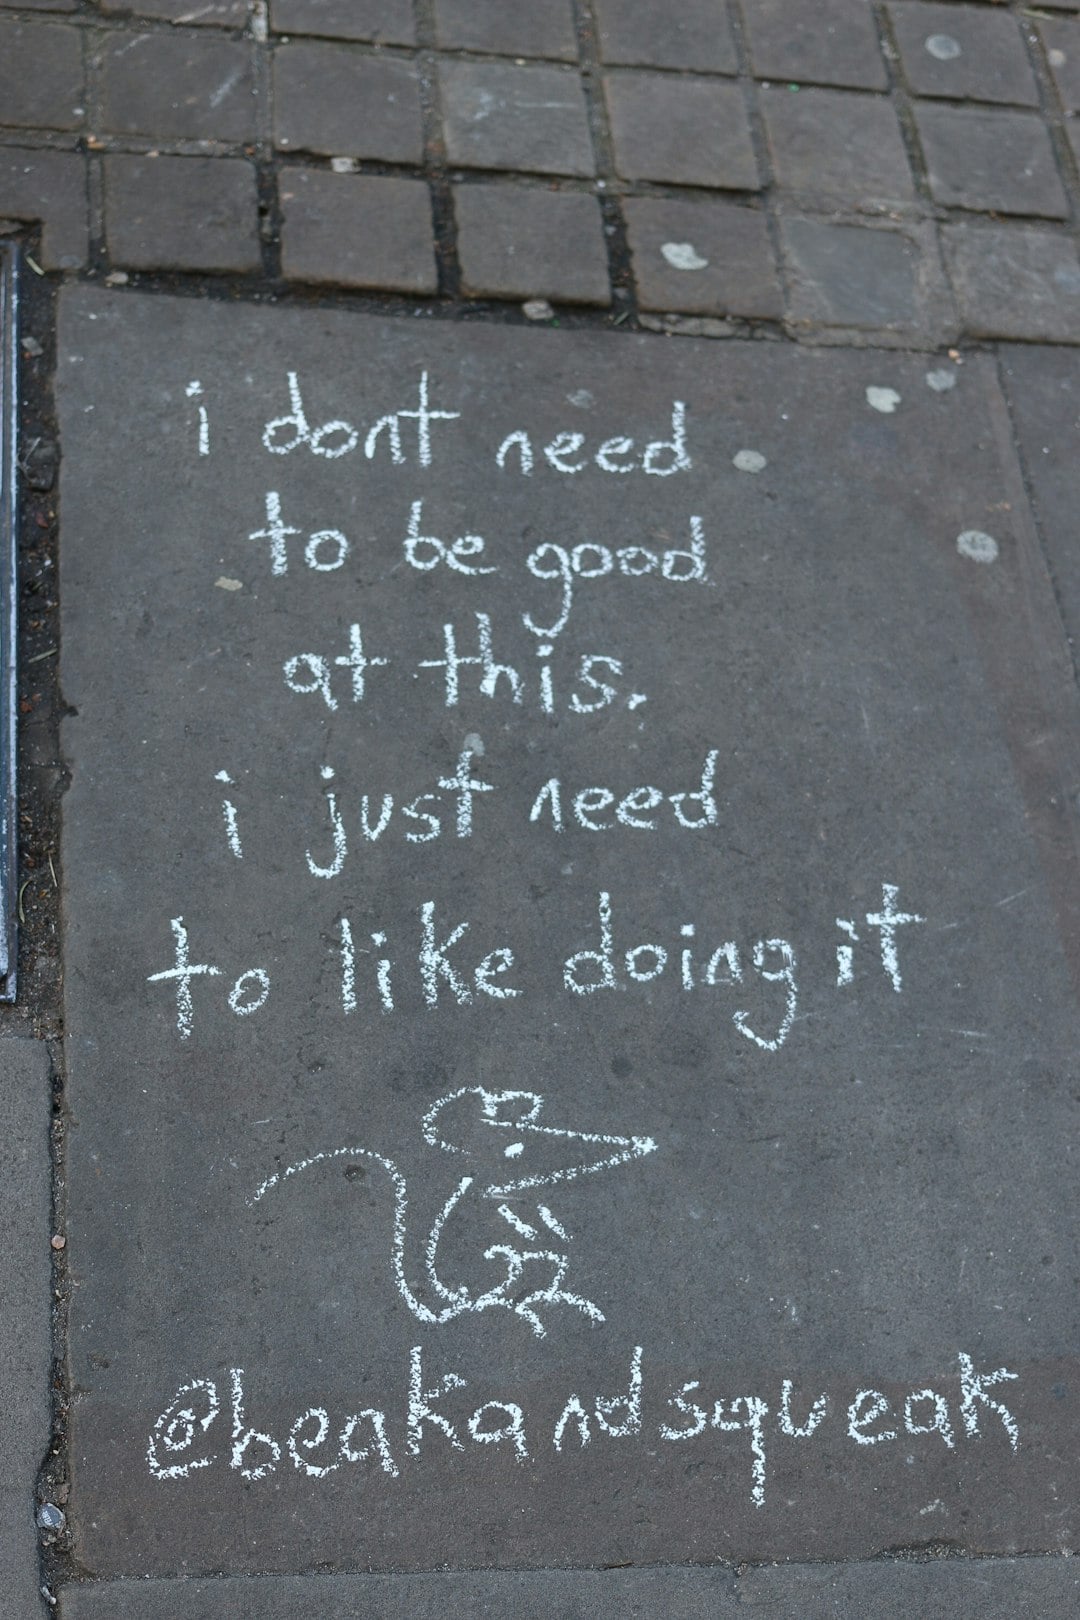 i dont need
to be good
at this.
i just need
to like doing it
@beakandsqueak